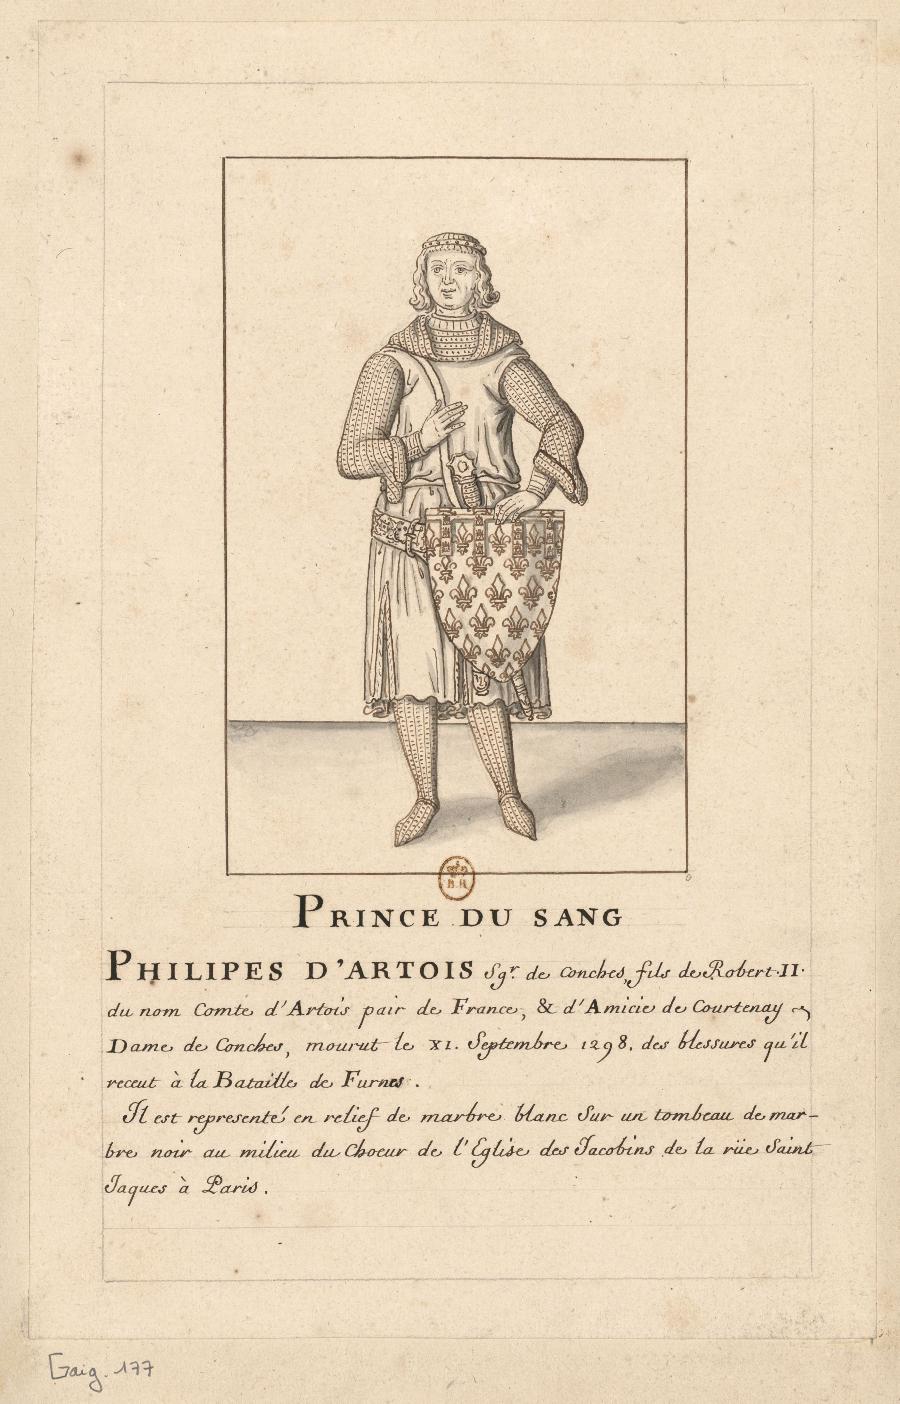 B.R
PRINCE DU SANG
PHILIPES D'ARTOIS Sgr. de Conches, fils de Robert·II·
du nom Comte d'Artois pair de France, & d'Amicie de Courtenay
Dame de Conches, mourut le XI. Septembre 1298. des blessures qu'il
receut à la Bataille de Furnes.
Il est representé en relief de marbre blanc Sur un tombeau de mar-
bre noir au milieu du Choeur de l'Eglise des Jacobins de la rüe Saint
Jaques à Paris.
Gaig. 177